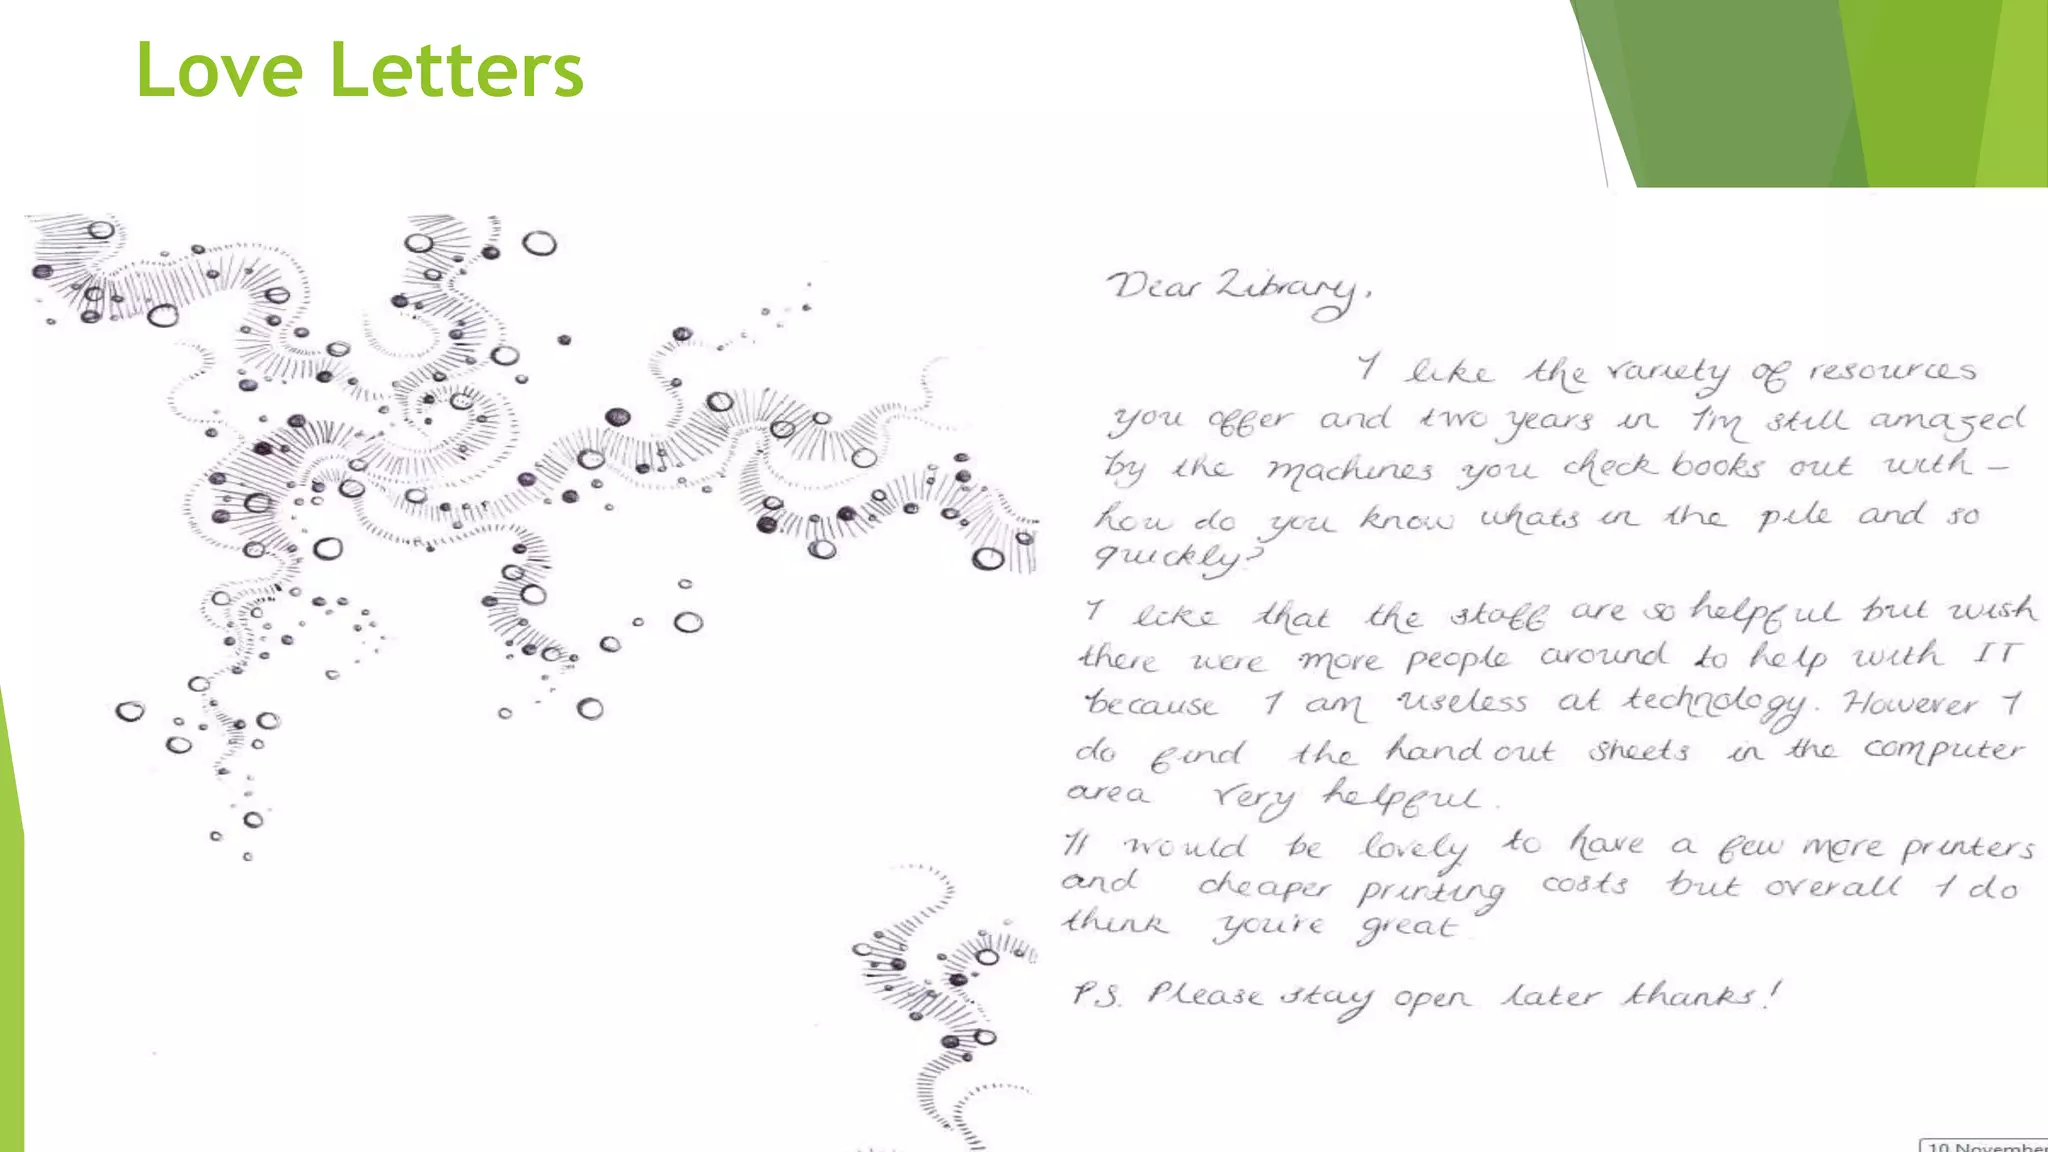 Love Letters
Dear Library,
I like the variety of resources
you offer and two years in I'm still amazed
by the machines you check books out with –
how do you know whats in the pile and so
quickly?
I like that the staff are so helpful but wish
there were more people around to help with IT
because I am useless at technology. However I
do find the hand out sheets in the computer
area very helpful.
It would be lovely to have a few more printers
and cheaper printing costs but overall I do
think you're great.
P.S. Please stay open later thanks!
10 November